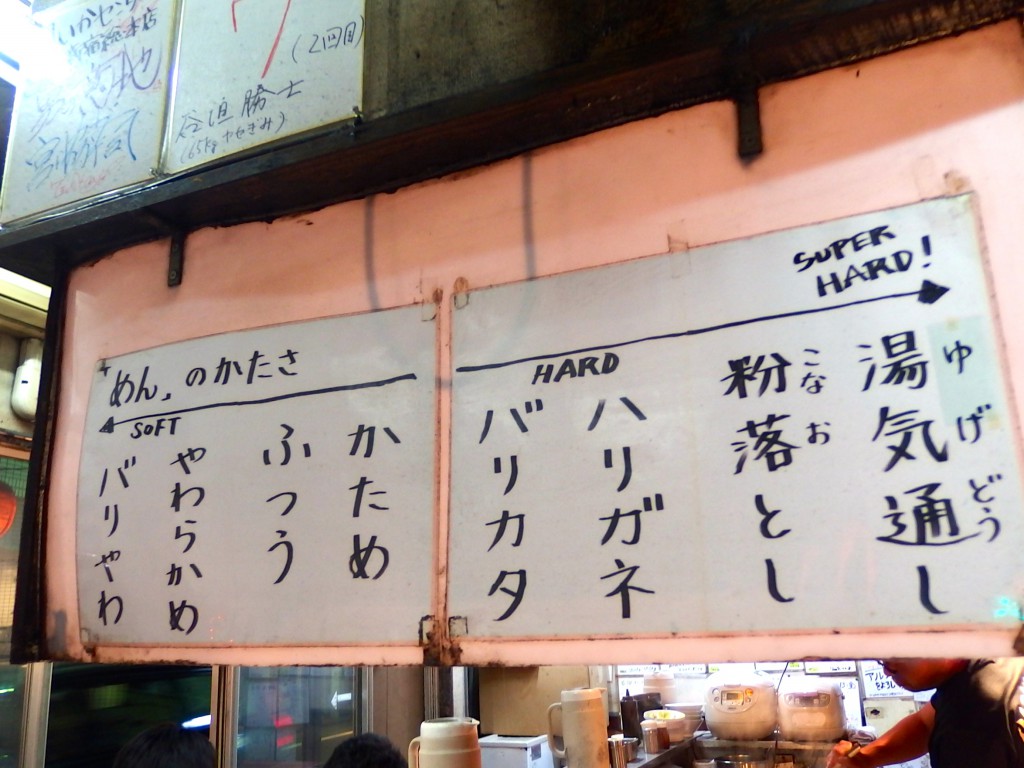 (2回目)
谷迫勝士
(65kg やせぎみ)
"めん"のかたさ
SOFT
HARD
SUPER
HARD!
バリやわ
やわらかめ
ふつう
かため
バリカタ
ハリガネ
粉落とし
こなお
湯気通し
ゆげどう